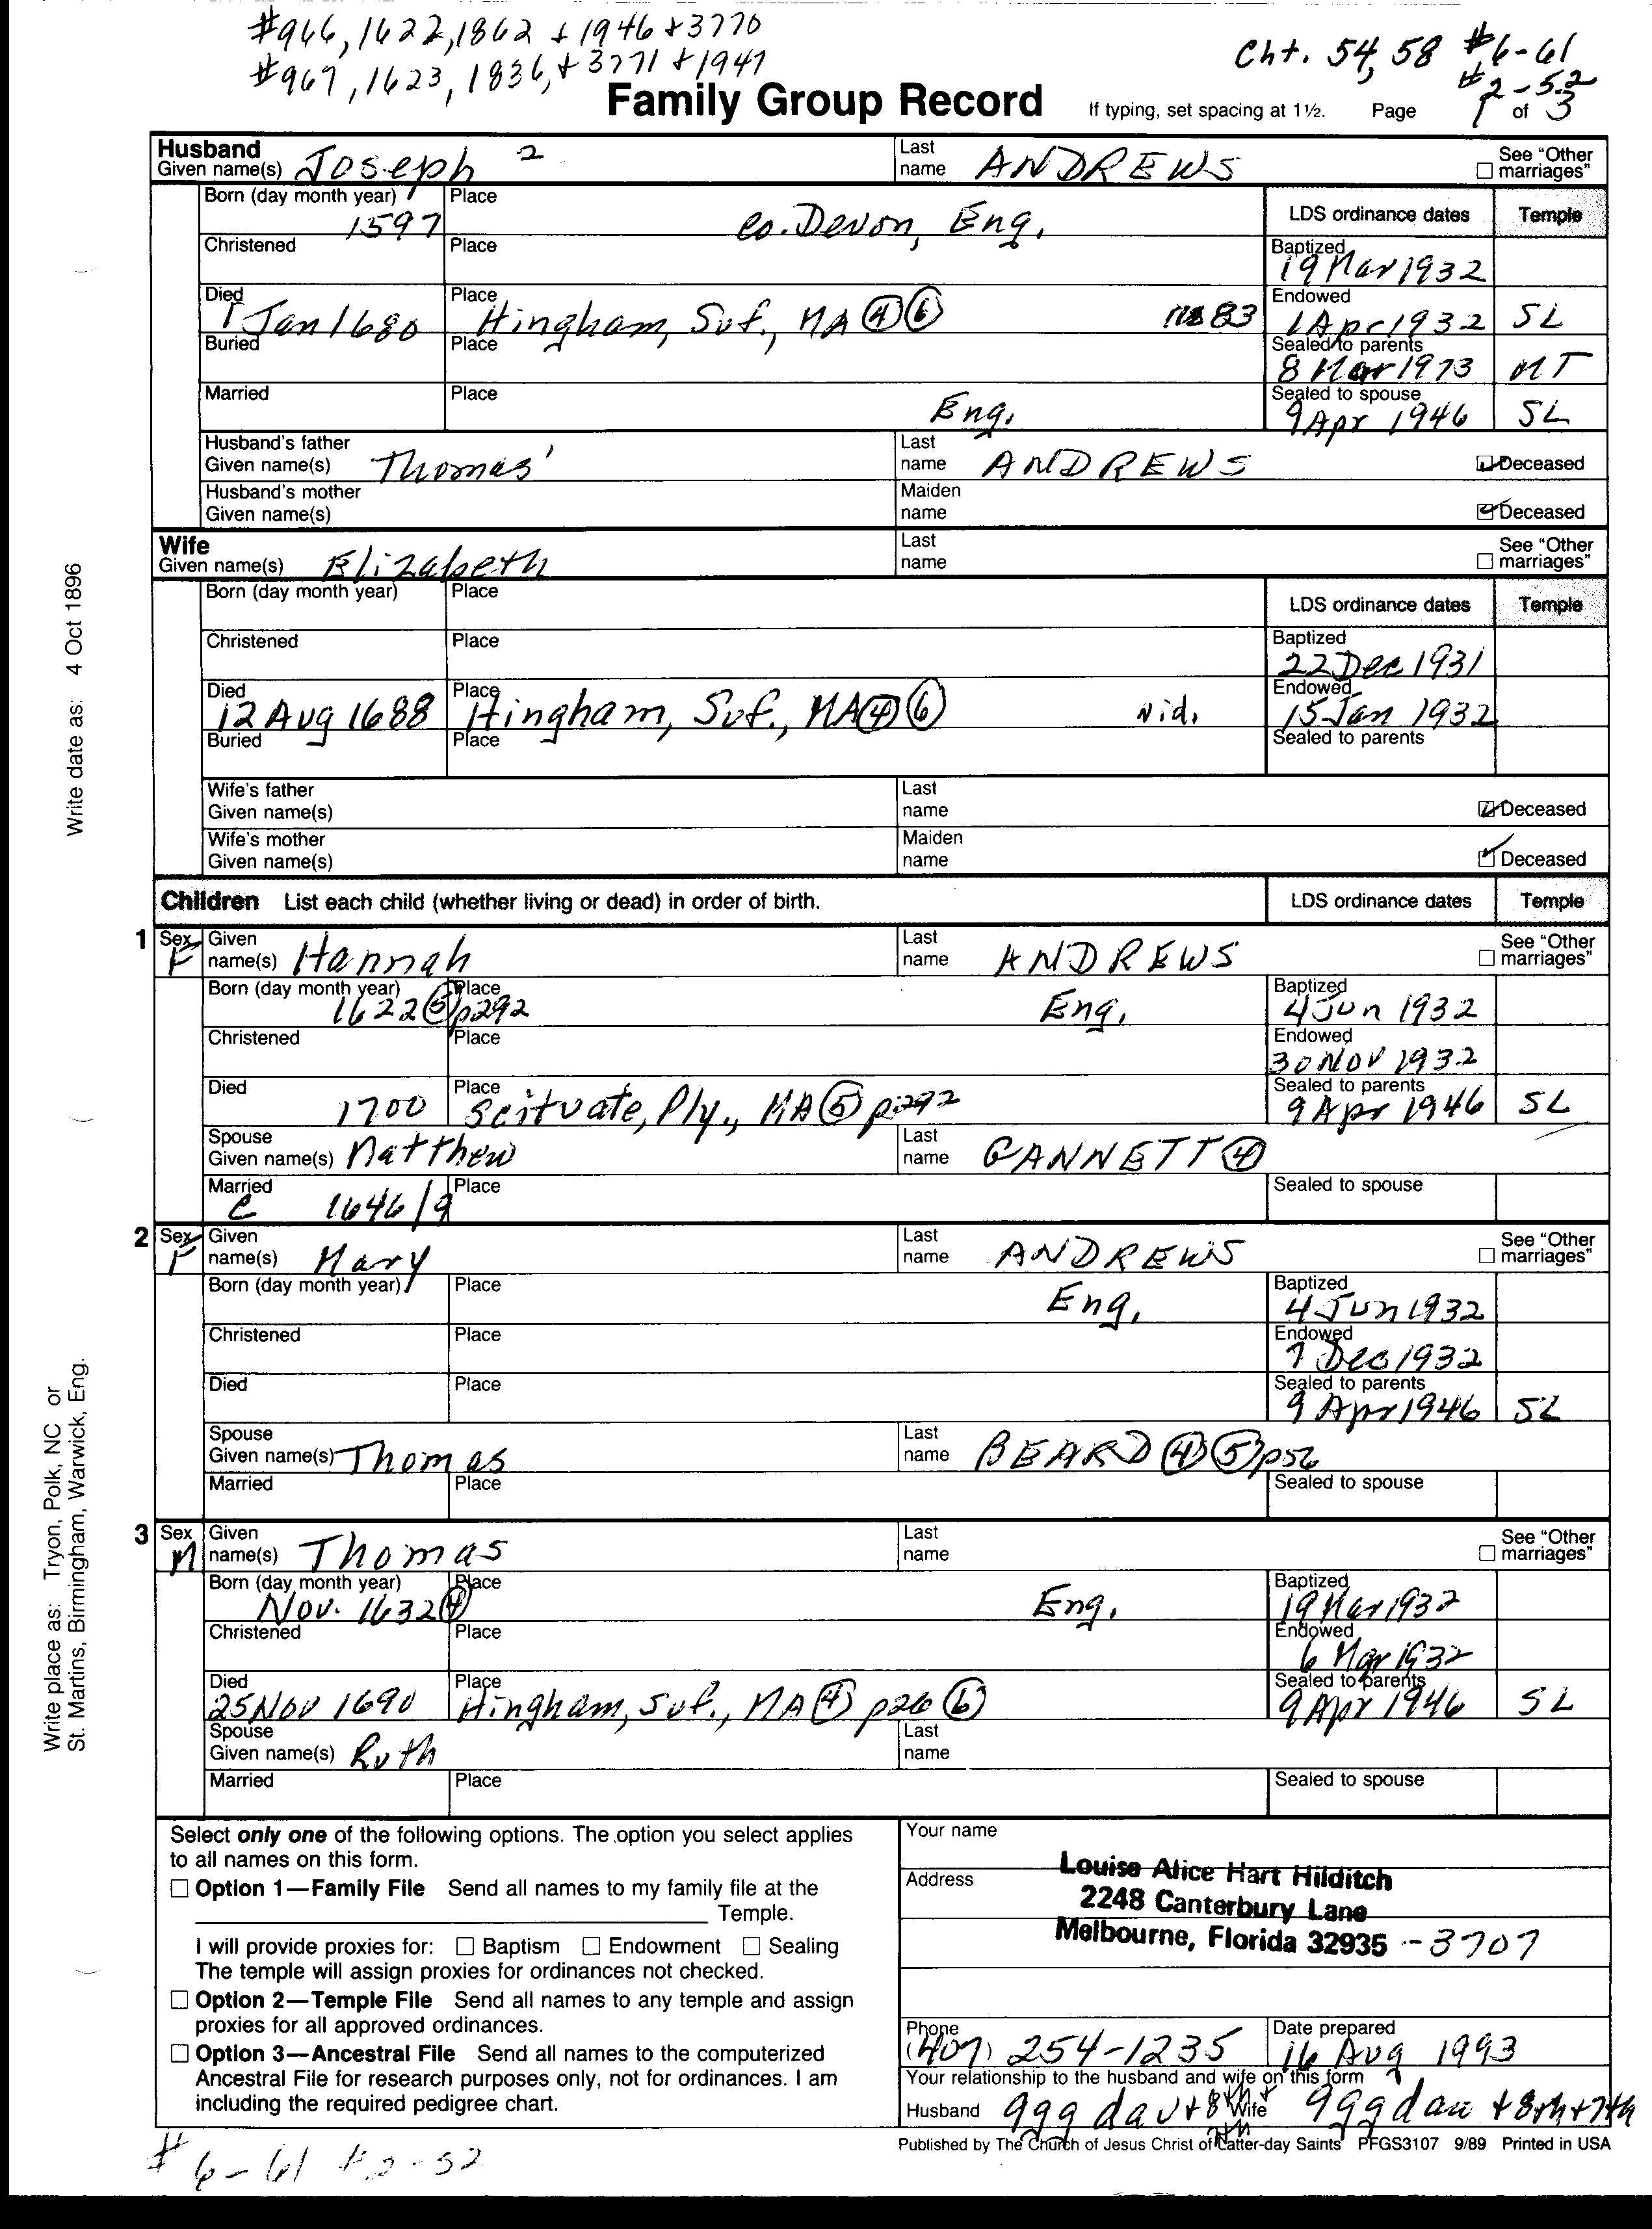 #966, 1622, 1862 + 1946 + 3770
#967, 1623, 1836, + 3771 + 1947
Cht. 54, 58 #6-61
#2-52
Family Group Record If typing, set spacing at 1½. Page 1 of 3
Husband
Given name(s) Joseph 2 Last name ANDREWS See "Other marriages"
Born (day month year) 1597 Place co. Devon, Eng. LDS ordinance dates Temple
Christened Place Baptized 19 Mar 1932
Died 1 Jan 1680 Place Hingham, Suf., MA ④⑥ 83 Endowed 1 Apr 1932 SL
Buried Place Sealed to parents 8 Mar 1973 MT
Married Place Eng. Sealed to spouse 9 Apr 1946 SL
Husband's father
Given name(s) Thomas' Last name ANDREWS Deceased
Husband's mother
Given name(s) Maiden name Deceased
Wife
Given name(s) Elizabeth Last name See "Other marriages"
Born (day month year) Place LDS ordinance dates Temple
Christened Place Baptized 22 Dec 1931
Died 12 Aug 1688 Place Hingham, Suf., MA ④⑥ Wid. Endowed 15 Jan 1932
Buried Place Sealed to parents
Wife's father
Given name(s) Last name Deceased
Wife's mother
Given name(s) Maiden name Deceased
Children List each child (whether living or dead) in order of birth. LDS ordinance dates Temple
1 Sex F Given name(s) Hannah Last name ANDREWS See "Other marriages"
Born (day month year) 1622 ⑤ p292 Place Eng. Baptized 4 Jun 1932
Christened Place Endowed 30 Nov 1932
Died 1700 Place Scituate, Ply., MA ⑤ p.292 Sealed to parents 9 Apr 1946 SL
Spouse
Given name(s) Matthew Last name GANNETT ④
Married c 1646/9 Place Sealed to spouse
2 Sex F Given name(s) Mary Last name ANDREWS See "Other marriages"
Born (day month year) Place Eng. Baptized 4 Jun 1932
Christened Place Endowed 7 Dec 1932
Died Place Sealed to parents 9 Apr 1946 SL
Spouse
Given name(s) Thomas Last name BEARD ④⑤ p56
Married Place Sealed to spouse
3 Sex M Given name(s) Thomas Last name See "Other marriages"
Born (day month year) Nov. 1632 ④ Place Eng. Baptized 19 Mar 1932
Christened Place Endowed 6 Mar 1932
Died 25 Nov 1690 Place Hingham, Suf., MA ④ p26 ⑥ Sealed to parents 9 Apr 1946 SL
Spouse
Given name(s) Ruth Last name
Married Place Sealed to spouse
Select only one of the following options. The option you select applies
to all names on this form.
Option 1—Family File Send all names to my family file at the
Temple.
I will provide proxies for: Baptism Endowment Sealing
The temple will assign proxies for ordinances not checked.
Option 2—Temple File Send all names to any temple and assign
proxies for all approved ordinances.
Option 3—Ancestral File Send all names to the computerized
Ancestral File for research purposes only, not for ordinances. I am
including the required pedigree chart.
Your name
Address Louise Alice Hart Hilditch
2248 Canterbury Lane
Melbourne, Florida 32935 - 3707
Phone (407) 254-1235 Date prepared 16 Aug 1993
Your relationship to the husband and wife on this form
Husband ggg dau + 8th + 7th Wife ggg dau + 8th + 7th
Published by The Church of Jesus Christ of Latter-day Saints PFGS3107 9/89 Printed in USA
# 6-61 #2-52
Write date as: 4 Oct 1896
Write place as: Tryon, Polk, NC or
St. Martins, Birmingham, Warwick, Eng.